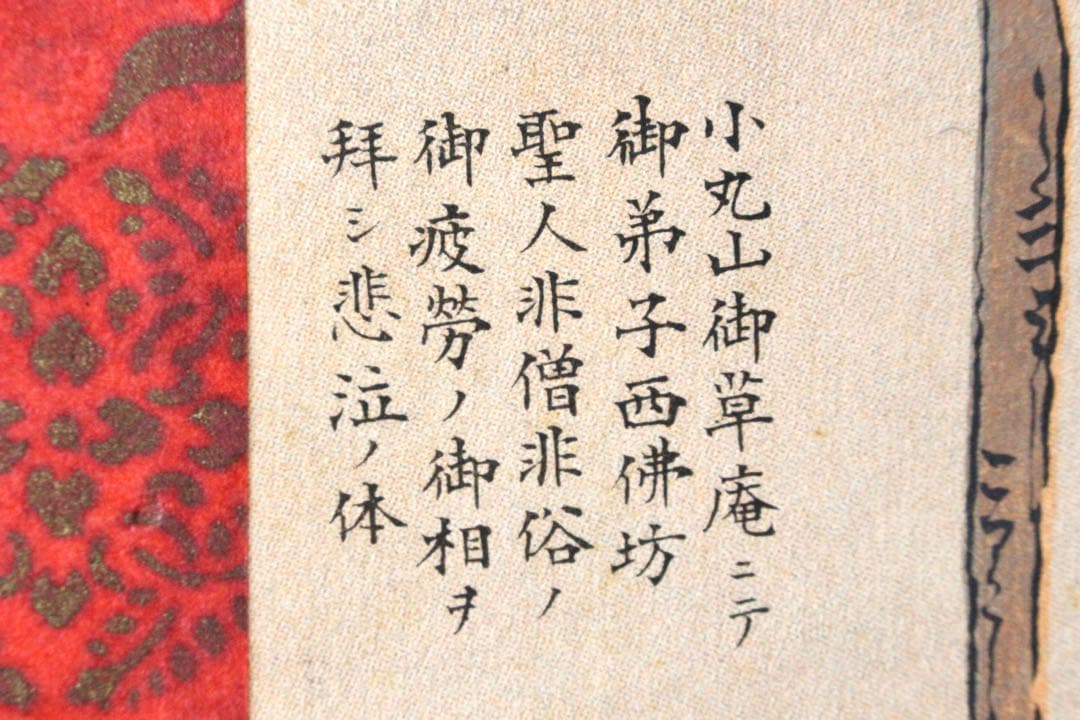 小丸山御草庵ニテ
御弟子西佛坊
聖人非僧非俗ノ
御疲勞ノ御相ヲ
拜シ悲泣ノ体